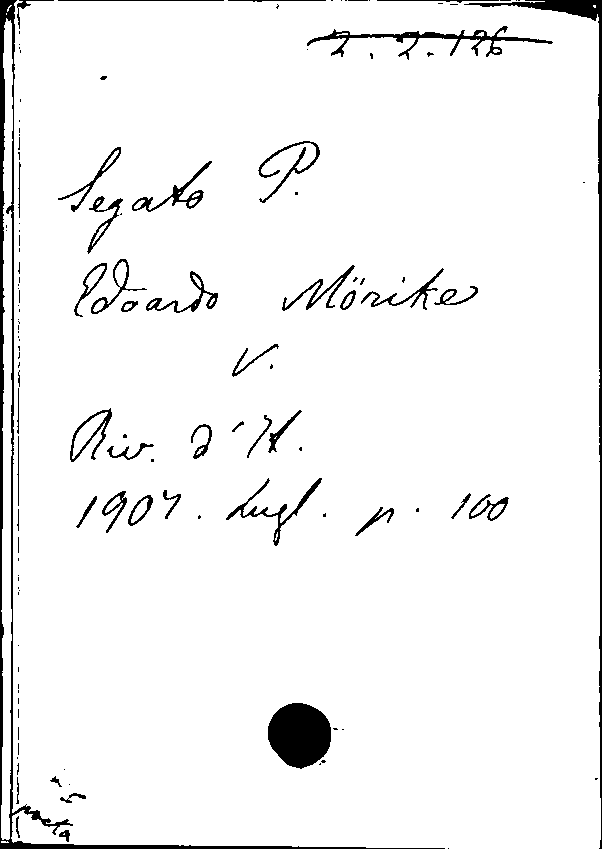 2. 2. 126
Segato P.
Edoardo Mörike
V.
Riv. d'It.
1907. Lugl. p. 100
poeta